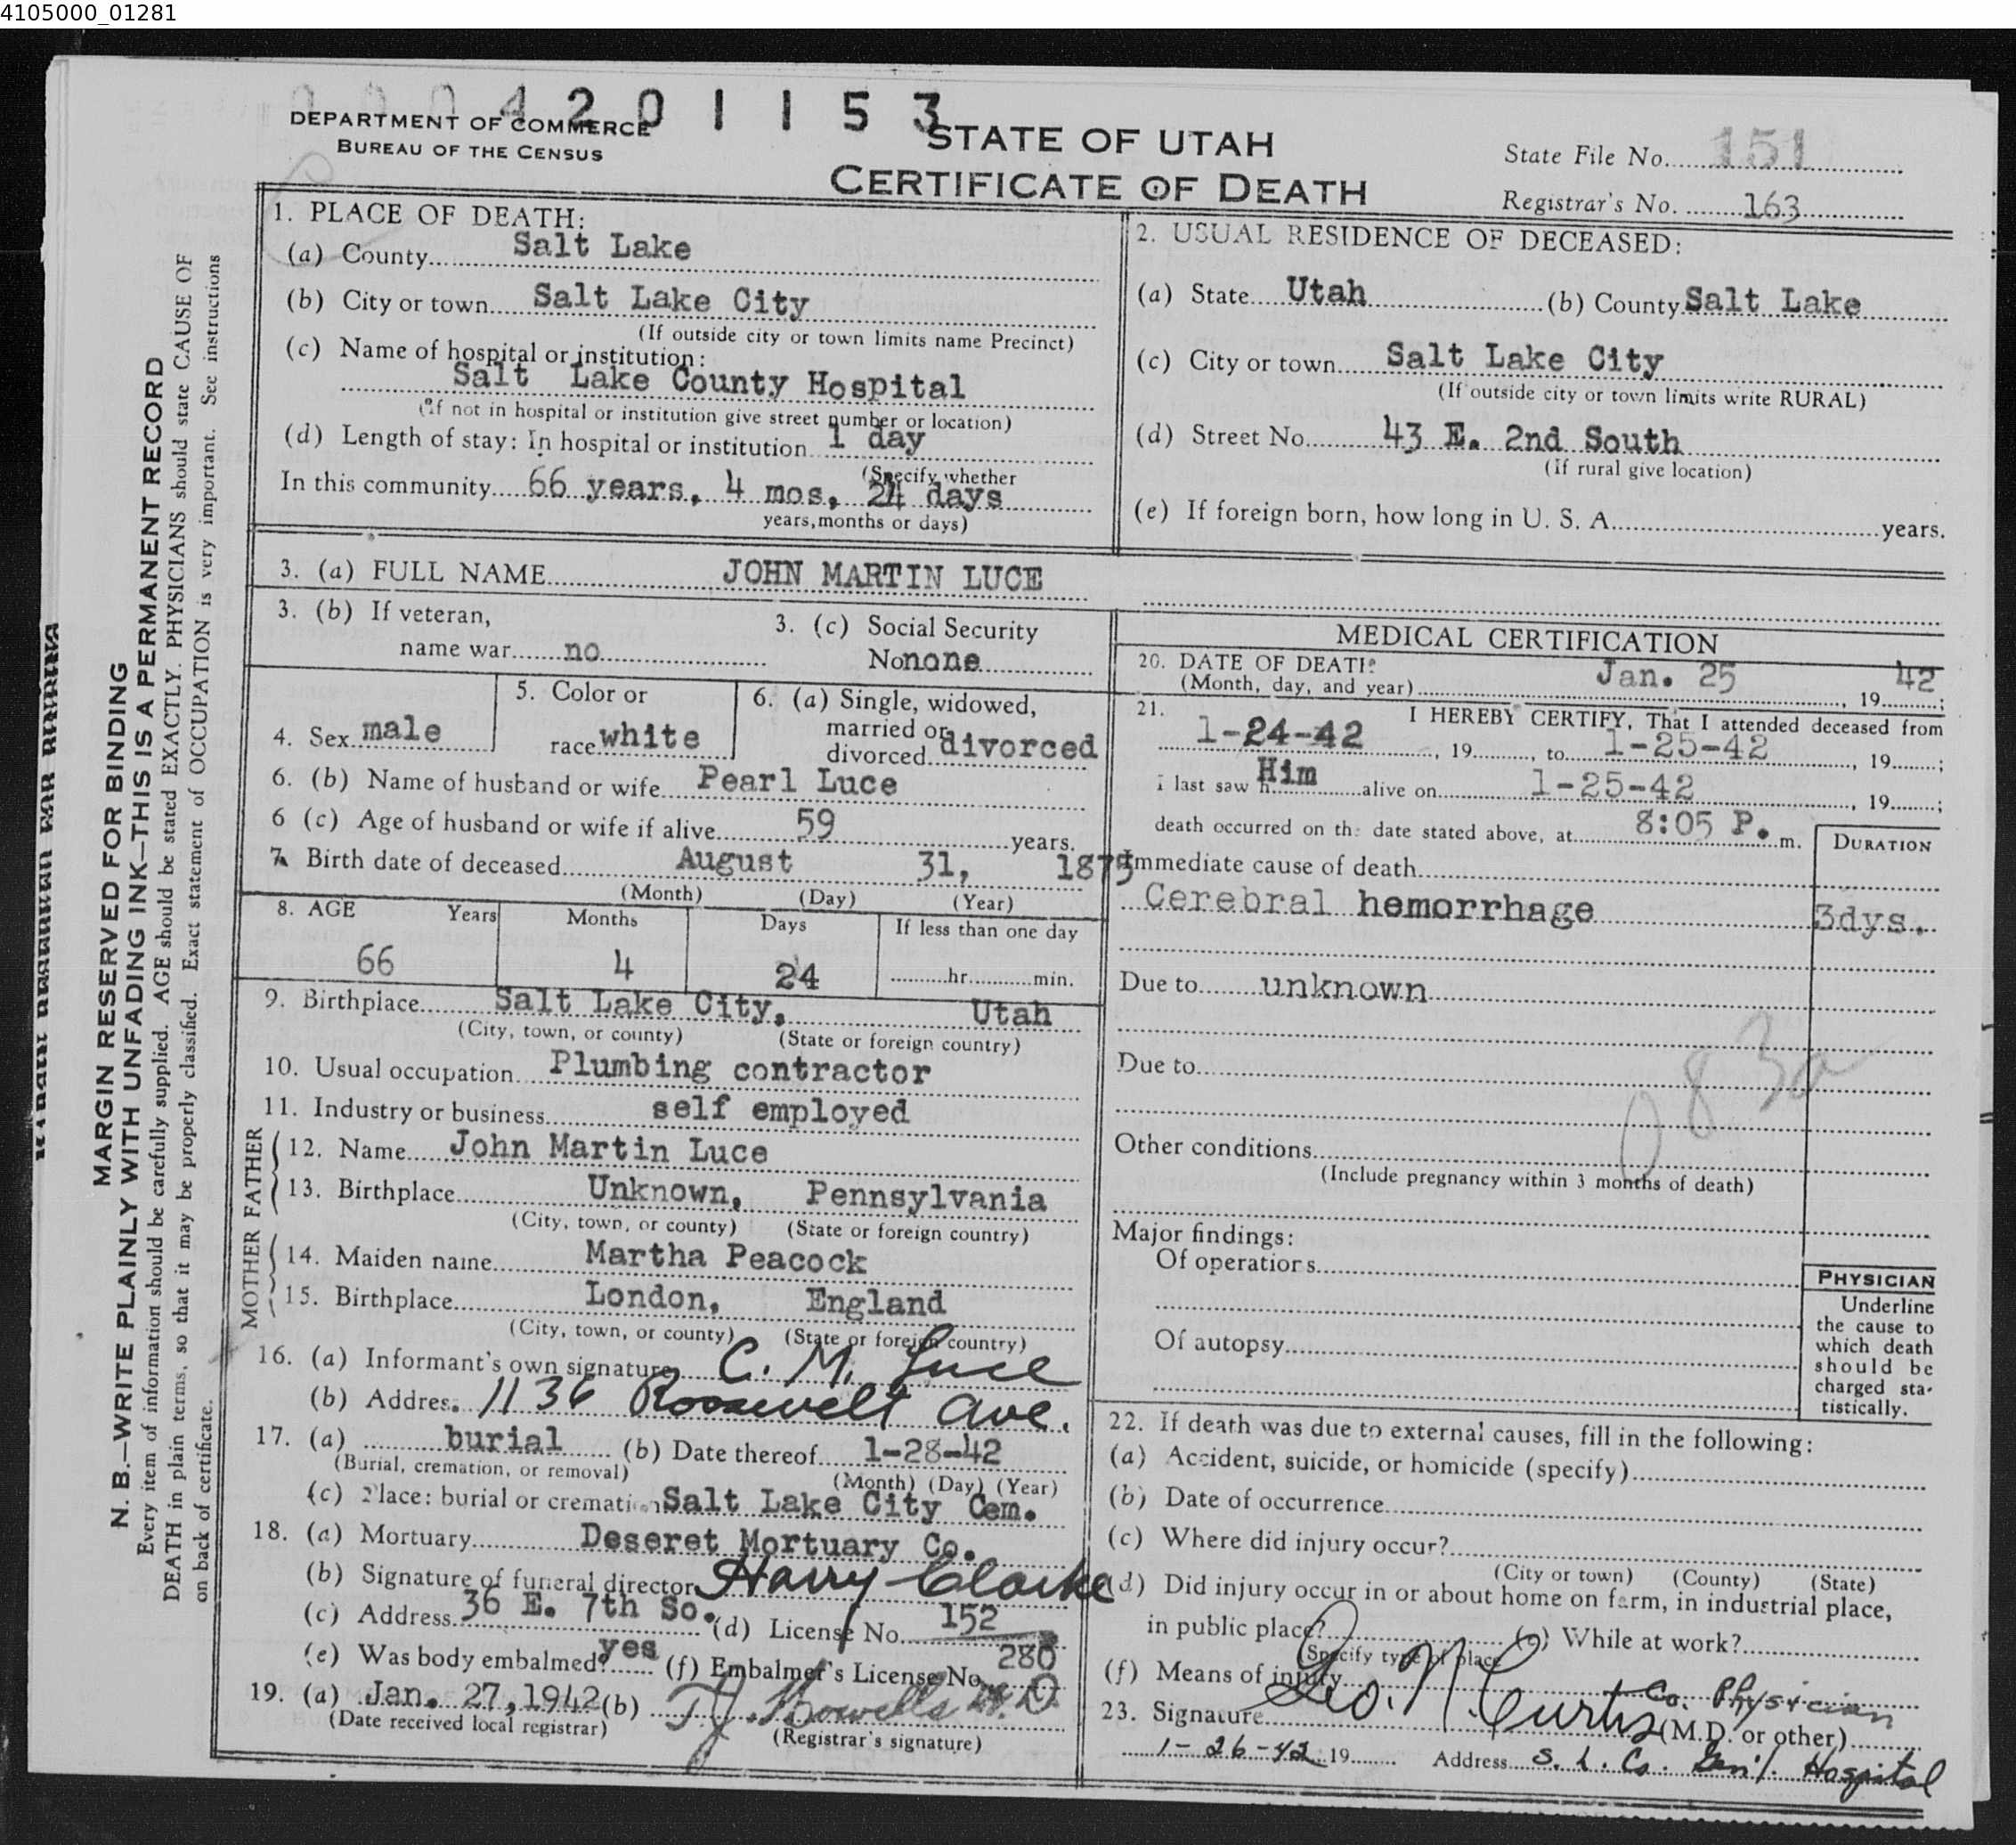 4105000_01281
0004201153
DEPARTMENT OF COMMERCE
BUREAU OF THE CENSUS
STATE OF UTAH
CERTIFICATE OF DEATH
State File No. 151
Registrar's No. 163
MARGIN RESERVED FOR BINDING
N. B.—WRITE PLAINLY WITH UNFADING INK—THIS IS A PERMANENT RECORD
Every item of information should be carefully supplied. AGE should be stated EXACTLY. PHYSICIANS should state CAUSE OF
DEATH in plain terms, so that it may be properly classified. Exact statement of OCCUPATION is very important. See instructions
on back of certificate.
1. PLACE OF DEATH:
(a) County Salt Lake
(b) City or town Salt Lake City
(If outside city or town limits name Precinct)
(c) Name of hospital or institution:
Salt Lake County Hospital
(If not in hospital or institution give street number or location)
(d) Length of stay: In hospital or institution 1 day
(Specify whether
In this community 66 years, 4 mos, 24 days
years, months or days)
2. USUAL RESIDENCE OF DECEASED:
(a) State Utah (b) County Salt Lake
(c) City or town Salt Lake City
(If outside city or town limits write RURAL)
(d) Street No. 43 E. 2nd South
(If rural give location)
(e) If foreign born, how long in U. S. A. years.
3. (a) FULL NAME JOHN MARTIN LUCE
3. (b) If veteran,
name war no
3. (c) Social Security
No none
4. Sex male
5. Color or
race white
6. (a) Single, widowed,
married or
divorced divorced
6. (b) Name of husband or wife Pearl Luce
6 (c) Age of husband or wife if alive 59 years.
7. Birth date of deceased August 31, 1875
(Month) (Day) (Year)
8. AGE Years Months Days If less than one day
66 4 24 hr. min.
9. Birthplace Salt Lake City, Utah
(City, town, or county) (State or foreign country)
10. Usual occupation Plumbing contractor
11. Industry or business self employed
FATHER
12. Name John Martin Luce
13. Birthplace Unknown, Pennsylvania
(City, town, or county) (State or foreign country)
MOTHER
14. Maiden name Martha Peacock
15. Birthplace London, England
(City, town, or county) (State or foreign country)
16. (a) Informant's own signature C. M. Luce
(b) Address 1136 Roosevelt Ave.
17. (a) burial (b) Date thereof 1-28-42
(Burial, cremation, or removal) (Month) (Day) (Year)
(c) Place: burial or cremation Salt Lake City Cem.
18. (a) Mortuary Deseret Mortuary Co.
(b) Signature of funeral director Harry Clarke
(c) Address 36 E. 7th So. (d) License No. 152
(e) Was body embalmed? yes (f) Embalmer's License No. 280
19. (a) Jan. 27, 1942 (b) T. J. Howells M.D.
(Date received local registrar) (Registrar's signature)
MEDICAL CERTIFICATION
20. DATE OF DEATH:
(Month, day, and year) Jan. 25, 1942;
21. I HEREBY CERTIFY, That I attended deceased from
1-24-42, 19, to 1-25-42, 19;
I last saw h Him alive on 1-25-42, 19;
death occurred on the date stated above, at 8:05 P. m.
DURATION
Immediate cause of death
Cerebral hemorrhage 3dys.
Due to unknown
Due to
83a
Other conditions
(Include pregnancy within 3 months of death)
Major findings:
Of operations
Of autopsy
PHYSICIAN
Underline
the cause to
which death
should be
charged sta-
tistically.
22. If death was due to external causes, fill in the following:
(a) Accident, suicide, or homicide (specify)
(b) Date of occurrence
(c) Where did injury occur?
(City or town) (County) (State)
(d) Did injury occur in or about home on farm, in industrial place,
in public place? (e) While at work?
(Specify type of place
(f) Means of injury
Co. Physician
23. Signature Geo. N. Curtis (M.D. or other)
1-26-42 19 Address S. L. Co. Gen'l. Hospital